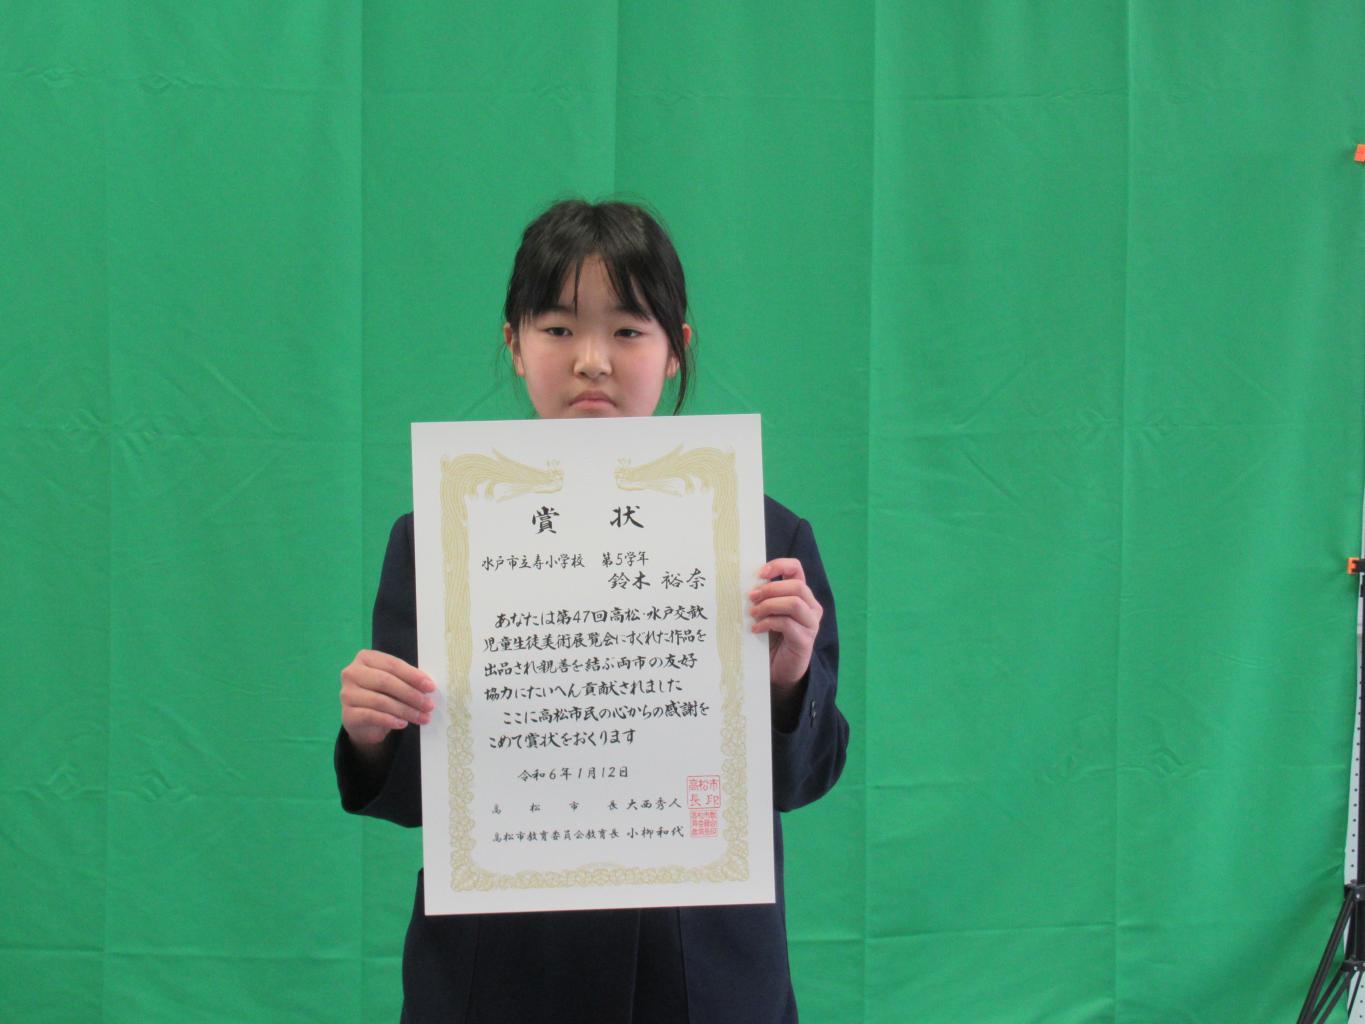 賞 状
水戸市立寿小学校 第5学年
鈴木 裕奈
あなたは第47回高松・水戸交歓
児童生徒美術展覧会にすぐれた作品を
出品され親善を結ぶ両市の友好
協力にたいへん貢献されました
ここに高松市民の心からの感謝を
こめて賞状をおくります
令和6年1月12日
高松市長 大西秀人
高松市教育委員会教育長 小柳和代
高松市
長印